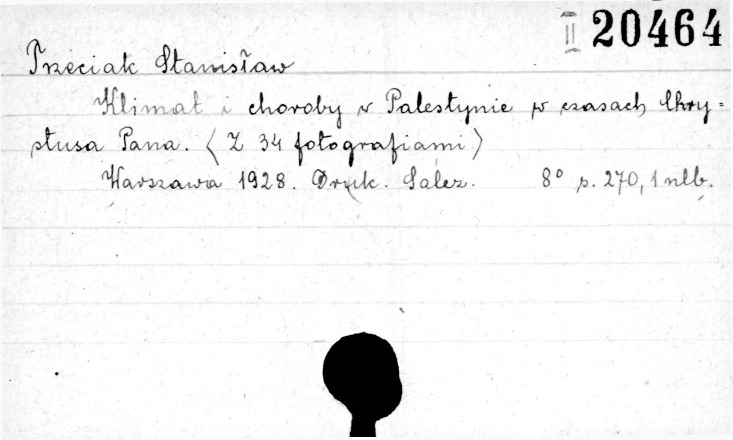 II 20464
Trzeciak Stanisław
Klimat i choroby w Palestynie w czasach Chry=
stusa Pana. (Z 34 fotografiami)
Warszawa 1928. Druk. Salez. 8° s. 270, 1 nlb.